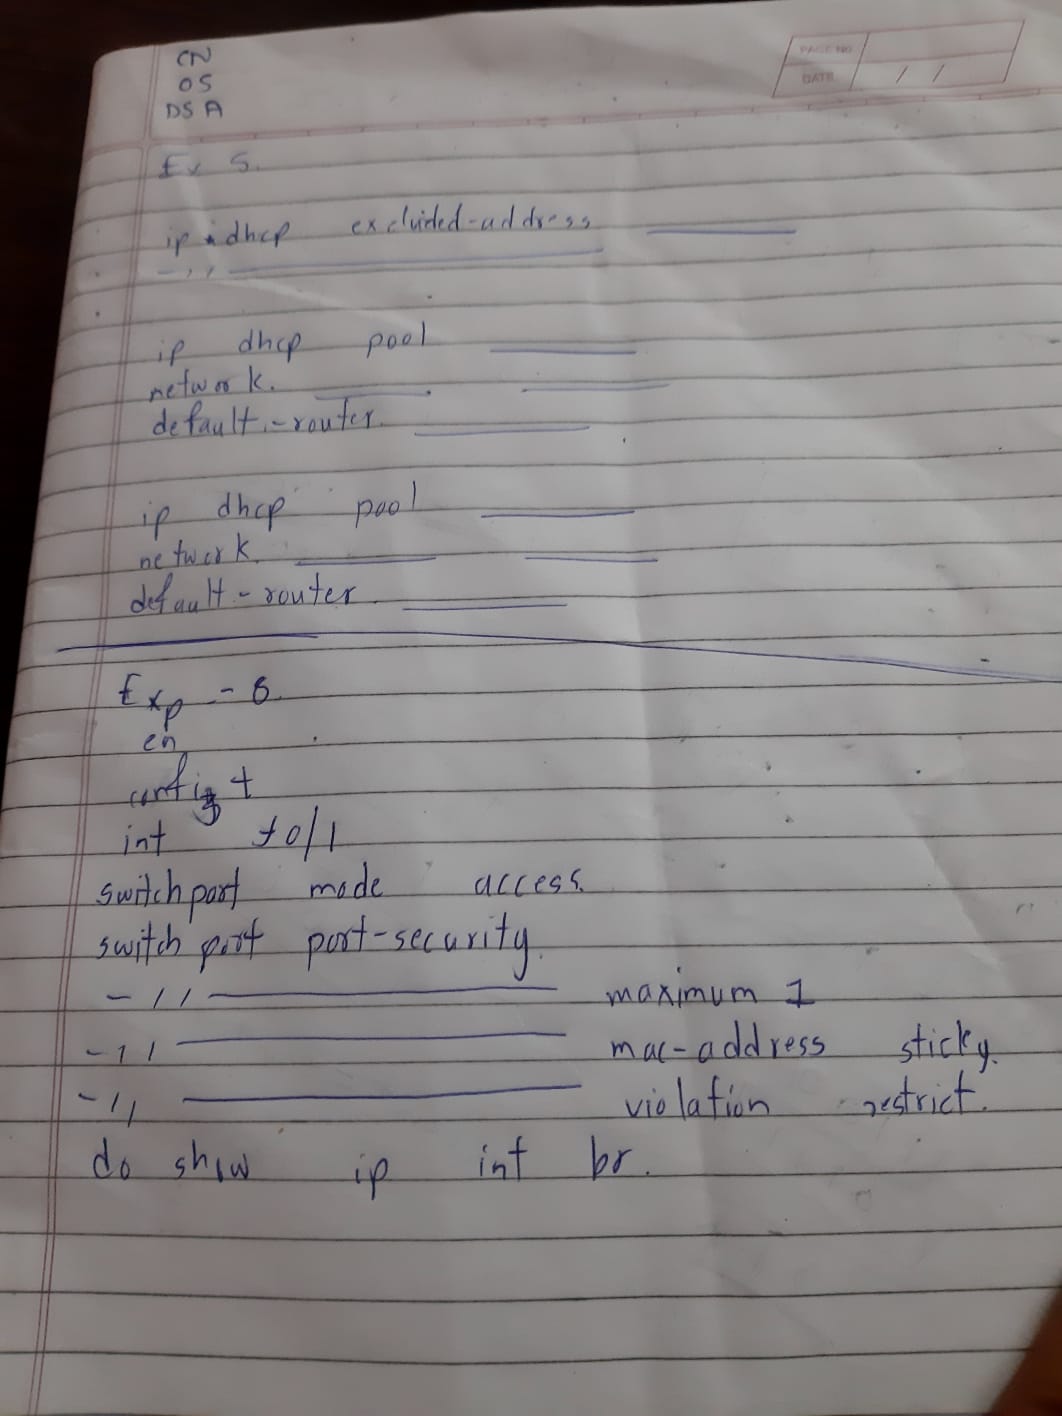 CN
OS
DSA
PAGE NO
DATE / /
Ex 5.
ip dhcp excluded-address ______
-//- ______
ip dhcp pool ______
network. ______ ______
default-router. ______
ip dhcp pool ______
network. ______ ______
default-router ______
Exp - 6.
en
config t
int f0/1
switchport mode access.
switch port port-security.
-//- ______ maximum 1
-//- ______ mac-address sticky.
-//- ______ violation restrict.
do show ip int br.